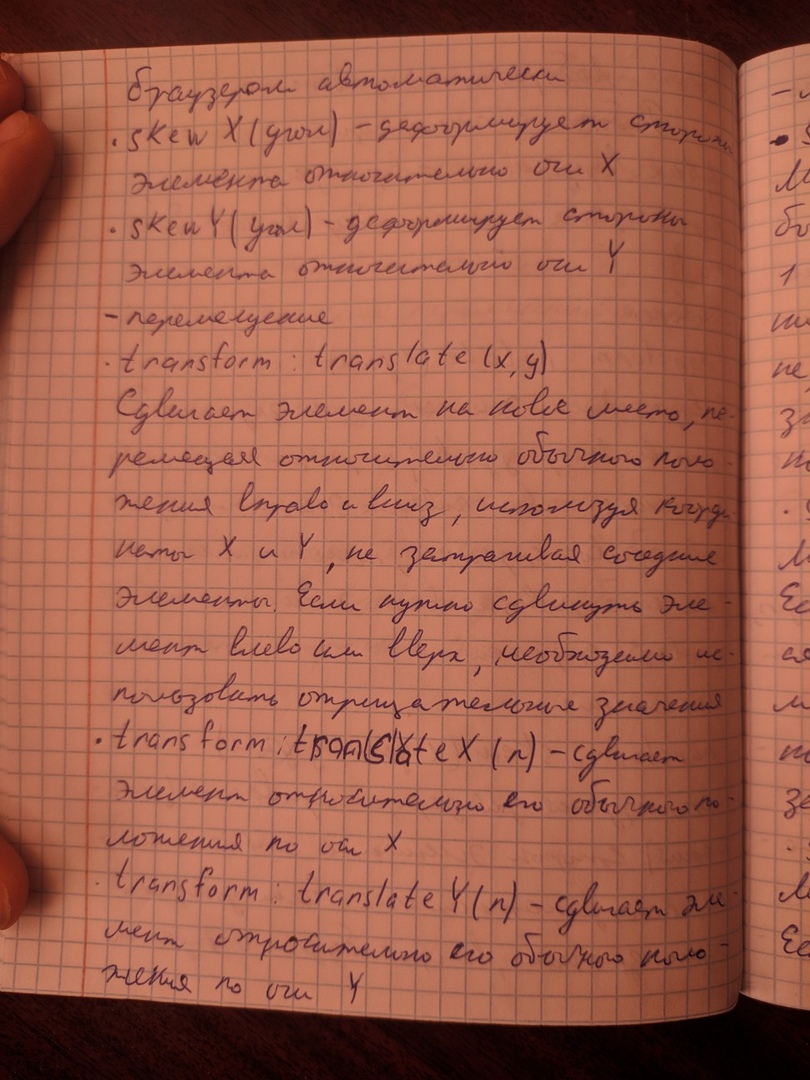 браузером автоматически
· skew X (угол) – деформирует стороны
элемента относительно оси X
· skew Y (угол) – деформирует стороны
элемента относительно оси Y
– перемещение
· transform : translate (x, y)
Сдвигает элемент на новое место, пе-
ремещая относительно обычного поло-
жения вправо и вниз, используя коорди-
наты X и Y, не затрагивая соседние
элементы. Если нужно сдвинуть эле-
мент влево или вверх, необходимо ис-
пользовать отрицательные значения
· transform : translate X (n) – сдвигает
элемент относительно его обычного по-
ложения по оси X
· transform : translate Y (n) – сдвигает эле-
мент относительно его обычного поло-
жения по оси Y